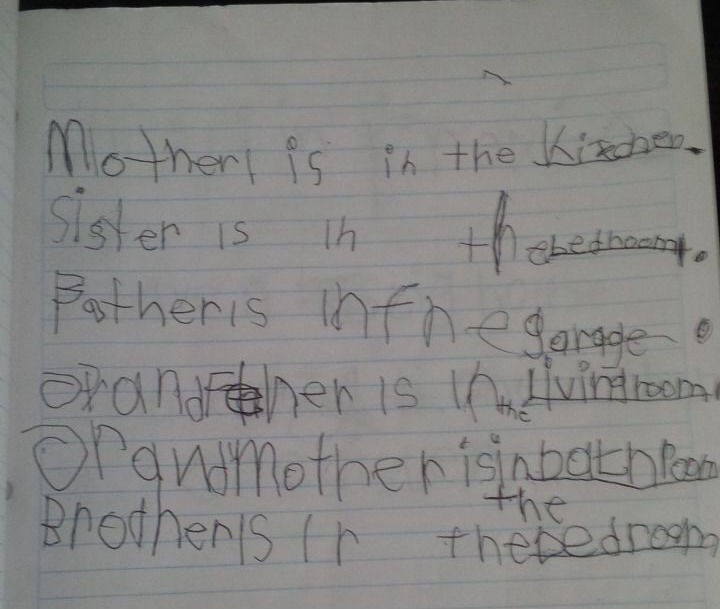 Mother is in the Kizchen.
Sister is in the bedroom.
Father is in the garage.
Grandfather is in the Livingroom
Grandmother is in bathroom
the
Brother is in the bedroom